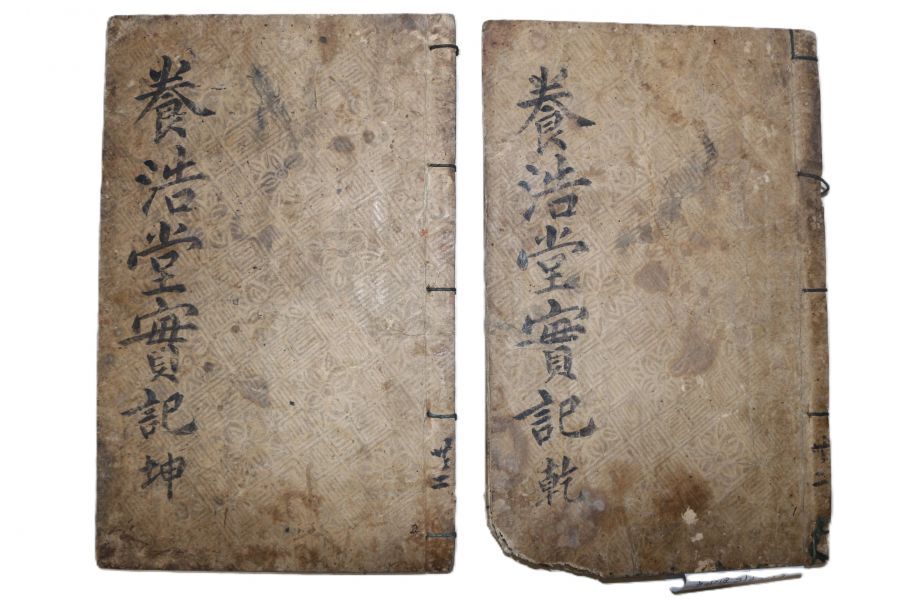 養浩堂實記 乾
共二
養浩堂實記 坤
共二